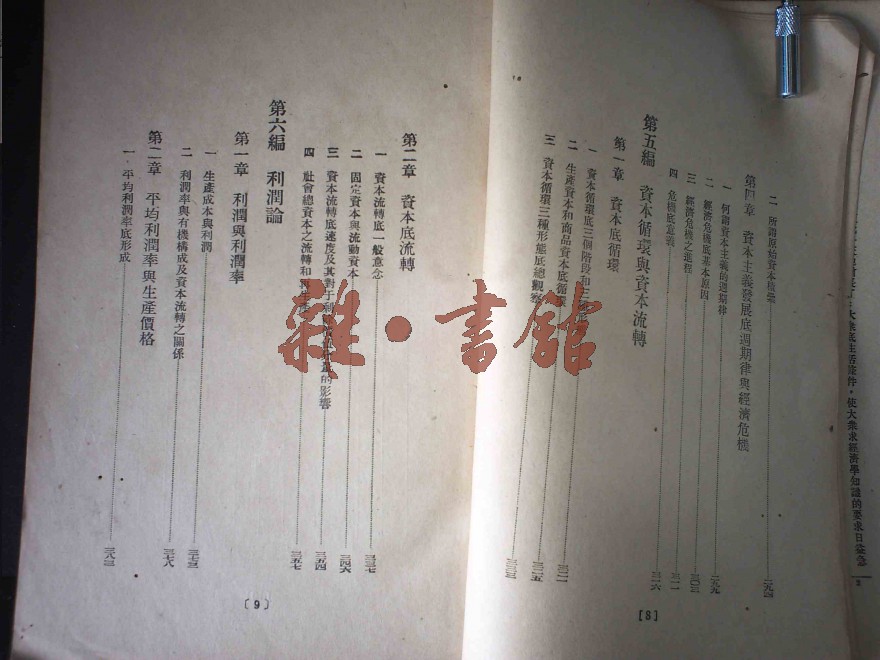 二 所謂原始資本積累
第四章 資本主義發展底週期律與經濟危機
一 何謂資本主義的週期律 二九九
二 經濟危機底基本原因 三〇三
三 經濟危機之進程 三一一
四 危機底意義 三一六
第五編 資本循環與資本流轉
第一章 資本底循環
一 資本循環底三個階段和三種
二 生產資本和商品資本底循環
三 資本循環三種形態底總觀察
[8]
第二章 資本底流轉
一 資本流轉底一般意念 三三七
二 固定資本與流動資本 三四六
三 資本流轉底速度及其對于 的影響 三五四
四 社會總資本之流轉和再生產 三五七
第六編 利潤論
第一章 利潤與利潤率
一 生產成本與利潤 三七三
二 利潤率與有機構成及資本流轉之關係 三七八
第二章 平均利潤率與生產價格
一 平均利潤率底形成 三八三
(9)
大衆底生活條件，使大衆求經濟學知識的要求日益急
2
雜·書館